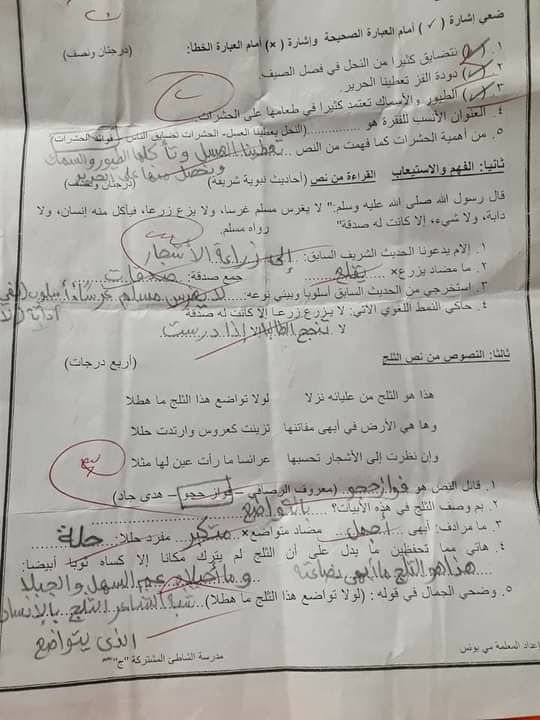 ضعي إشارة ( ✓ ) أمام العبارة الصحيحة وإشارة ( × ) أمام العبارة الخطأ: (درجتان ونصف)
١. ( ✓ ) نتضايق كثيرا من النحل في فصل الصيف.
٢. ( ✓ ) دودة القز تعطينا الحرير.
٣. ( ✓ ) الطيور والأسماك تعتمد كثيرا في طعامها على الحشرات
٤. العنوان الأنسب للفقرة هو ..............(النحل يعطينا العسل- الحشرات تضايق الناس- فوائد الحشرات)
٥. من أهمية الحشرات كما فهمت من النص تعطينا العسل وتأكلها الطيور والسمك
ونحصل منها على الحرير
ثانيا: الفهم والاستيعاب القراءة من نص (أحاديث نبوية شريفة) (درجتان ونصف)
قال رسول الله صلى الله عليه وسلم:" لا يغرس مسلم غرسا، ولا يزع زرعا، فيأكل منه إنسان، ولا
دابة، ولا شيء، إلا كانت له صدقة" رواه مسلم.
١. إلام يدعونا الحديث الشريف السابق: إلى زراعة الأشجار
٢. ما مضاد يزرع× يقلع جمع صدقة: صدقات
٣. استخرجي من الحديث السابق أسلوبا وبيني نوعه: لا يغرس مسلم غرساً أسلوب نفي
أداته لا
٤. حاكي النمط اللغوي الآتي: لا يزرع زرعا إلا كانت له صدقة
لا تنجح الطالبة إلا إذا درست
ثالثا: النصوص من نص الثلج (أربع درجات)
هذا هو الثلج من عليائه نزلا لولا تواضع هذا الثلج ما هطلا
وها هي الأرض في أبهى مفاتنها تزينت كعروس وارتدت حللا
وإن نظرت إلى الأشجار تحسبها عرائسا ما رأت عين لها مثلا
١. قائل النص هو فواز حجو (معروف الرصافي – فواز حجو – هدى جاد)
٢. بم وصف الثلج في هذه الأبيات؟ بالتواضع
٣. ما مرادف: أبهى أجمل مضاد متواضع× متكبر مفرد حللا: حلة
٤. هاتي مما تحفظين ما يدل على أن الثلج لم يترك مكانا إلا كساه ثوبا أبيضا:
هذا هو الثلج ما أبهى نصاعته وما أجمله عم السهل والجبلا
٥. وضحي الجمال في قوله: (لولا تواضع هذا الثلج ما هطلا) شبه الشاعر الثلج بالإنسان
الذي يتواضع
إعداد المعلمة مي يونس
مدرسة الشاطئ المشتركة "ج"